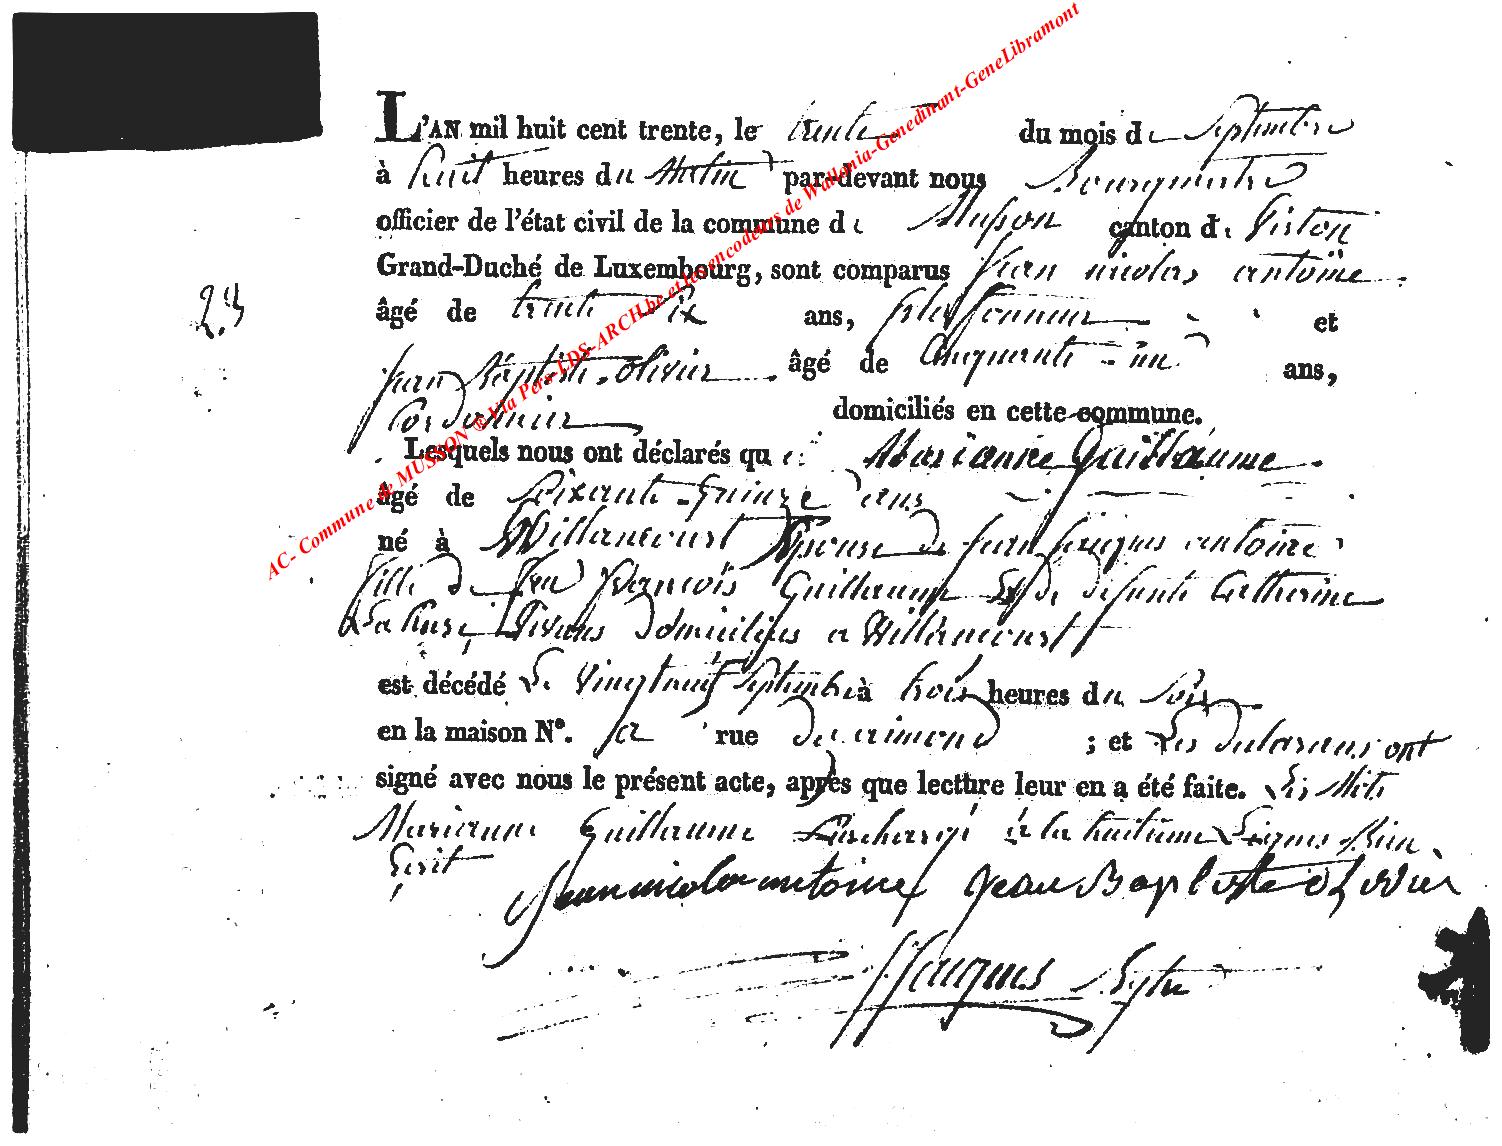 L'AN mil huit cent trente, le trente du mois de Septembre
à huit heures du Matin par-devant nous Bourgmestre
officier de l'état civil de la commune de Musson canton de Virton
Grand-Duché de Luxembourg, sont comparus Jean nicolas antoine
23
âgé de trente Six ans, et
Jean Baptiste Olivier âgé de Cinquante-un ans,
Cordonnier domiciliés en cette commune.
Lesquels nous ont déclarés que Marianne Guillaume
âgé de Soixante-Quinze ans
né à Willancourt Epouse de Jean Jacques antoine
fille de feu françois Guillaume Et de defunte Catherine
Vivans domiciliés a Willancourt
est décédé Le Vingt neuf Septembre à trois heures du Soir
en la maison N°. rue ; et Les declarans ont
signé avec nous le présent acte, après que lecture leur en a été faite. Les Mots
Marianne Guillaume Surchargé à la huitieme Lignes Bien
Ecrit
Jean nicolas antoine Jean Baptiste olivier
Jacques
AC- Commune de MUSSON ® Via Pers-LDS-ARCH.be et les encodeurs de Wallonia-Genedinant-GeneLibramont